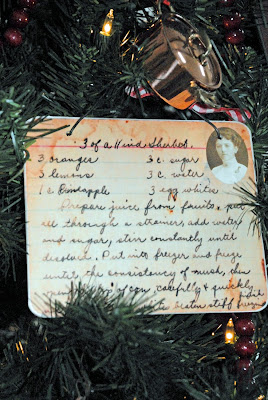 3 of a Kind Sherbet.
3 oranges 3 c. sugar
3 lemons 3 c. water
1 c pineapple 3 egg whites
Prepare juice from fruits, put
all through a strainer, add water
and sugar, stirr constantly until
disolved. Put into freezer and freeze
until the consistency of mush, then
of can, carefully & quickly
beaten stiff